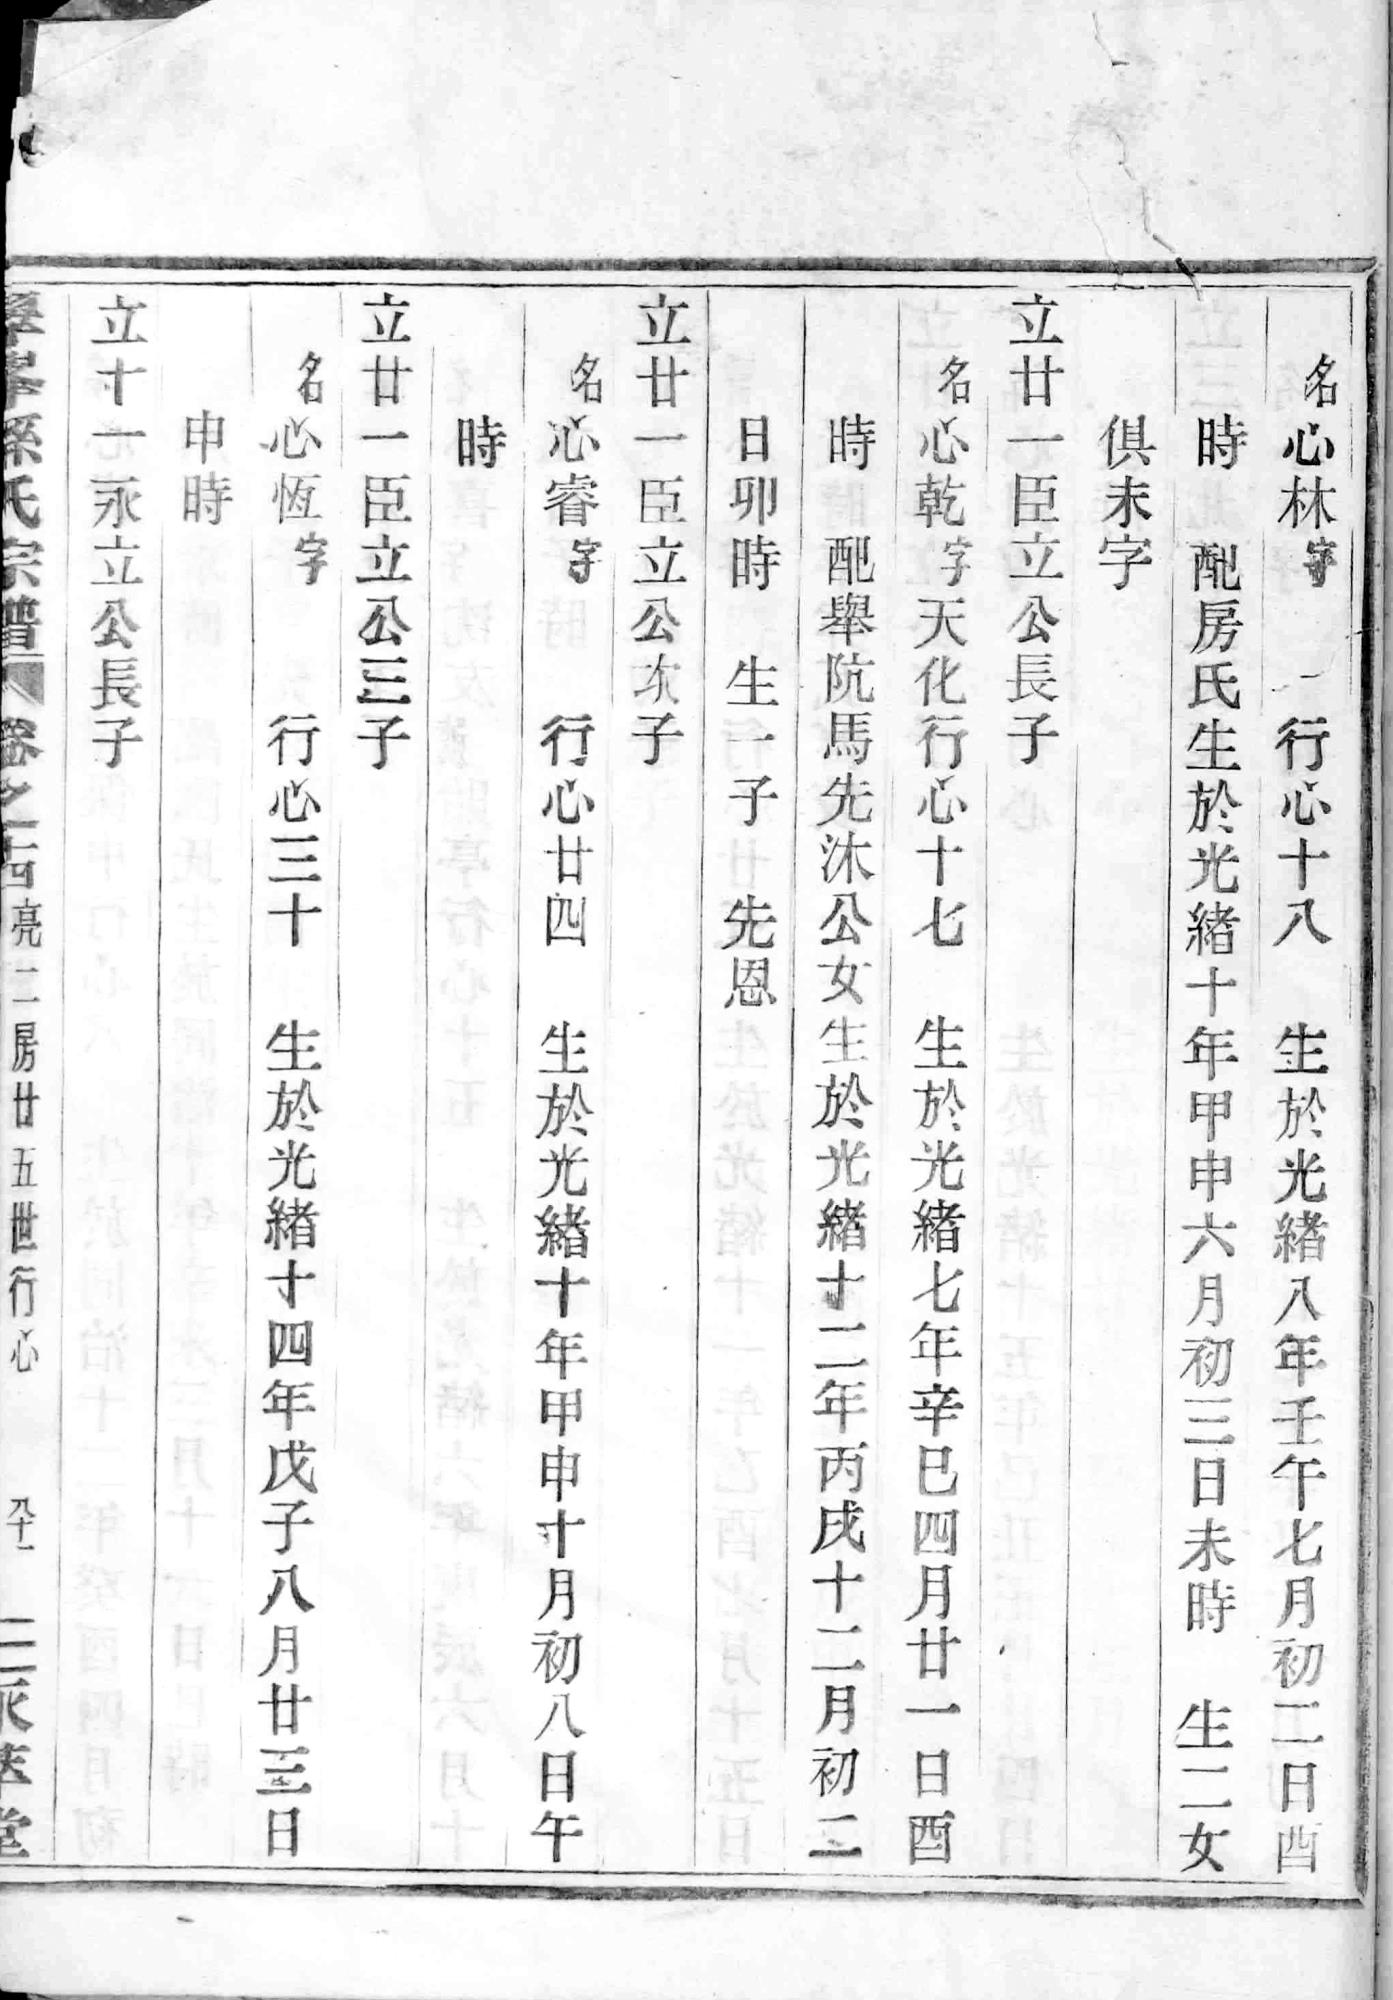 名心林字 行心十八 生於光緒八年壬午七月初二日酉
時 配房氏生於光緒十年甲申六月初三日未時 生二女
俱未字
立廿一臣立公長子
名心乾字天化行心十七 生於光緒七年辛巳四月廿一日酉
時 配舉阬馬先沐公女生於光緒十二年丙戌十二月初二
日卯時 生一子 先恩
立廿一臣立公次子
名心睿字 行心廿四 生於光緒十年甲申十月初八日午
時
立廿一臣立公三子
名心恆字 行心三十 生於光緒十四年戊子八月廿三日
申時
立十一永立公長子
孫氏宗譜 卷之 亮二房廿五世行心 堂